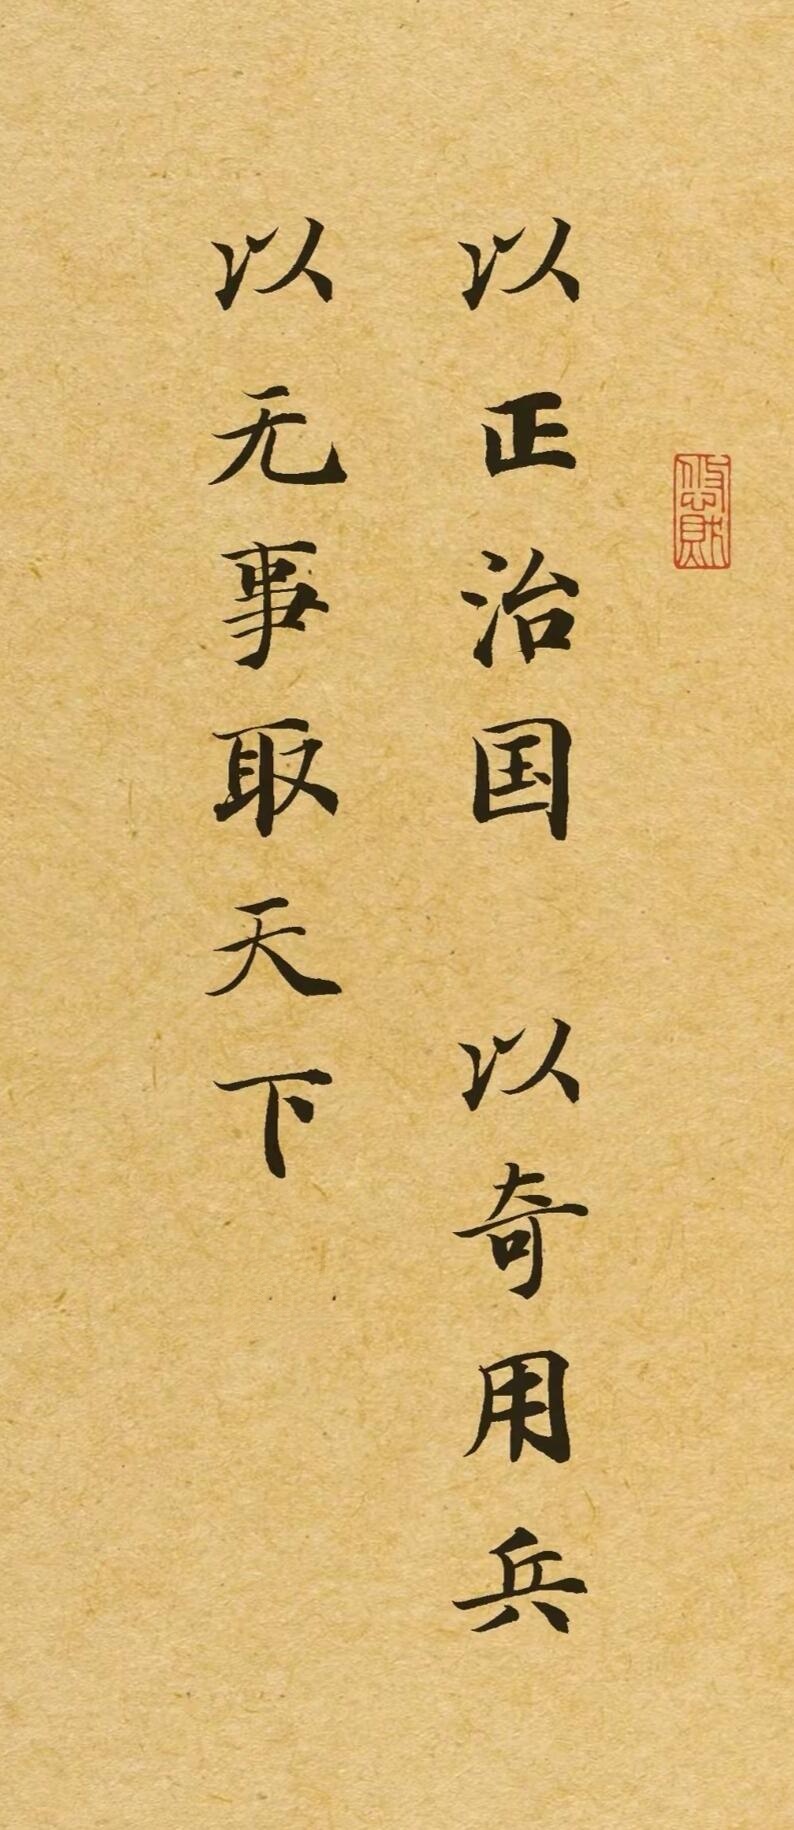 以正治国 以奇用兵
以无事取天下